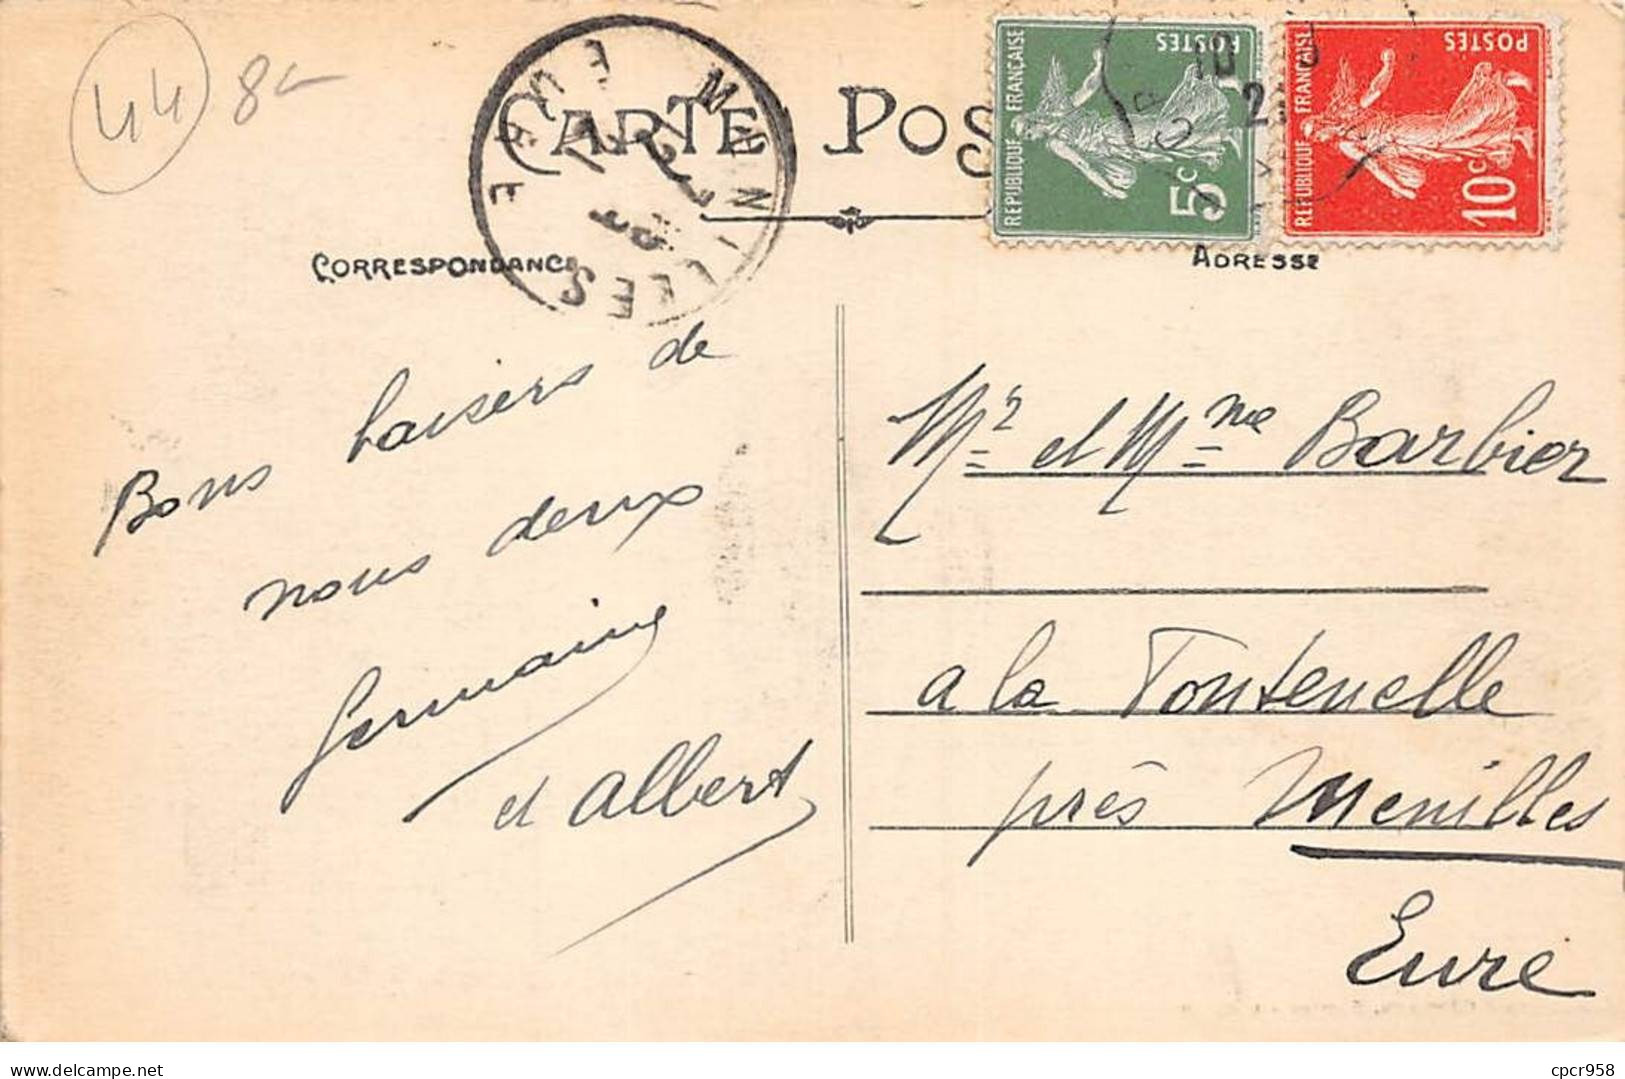 44 8
CARTE POS
RÉPUBLIQUE FRANÇAISE
POSTES
5c
RÉPUBLIQUE FRANÇAISE
POSTES
10c
MENILLES
EURE
CORRESPONDANCE
ADRESSE
Bons baisers de
nous deux
Germaine
et Albert
Mr et Mme Barbier
a la Fontenelle
près Menilles
Eure
delcampe.net
cpcr958